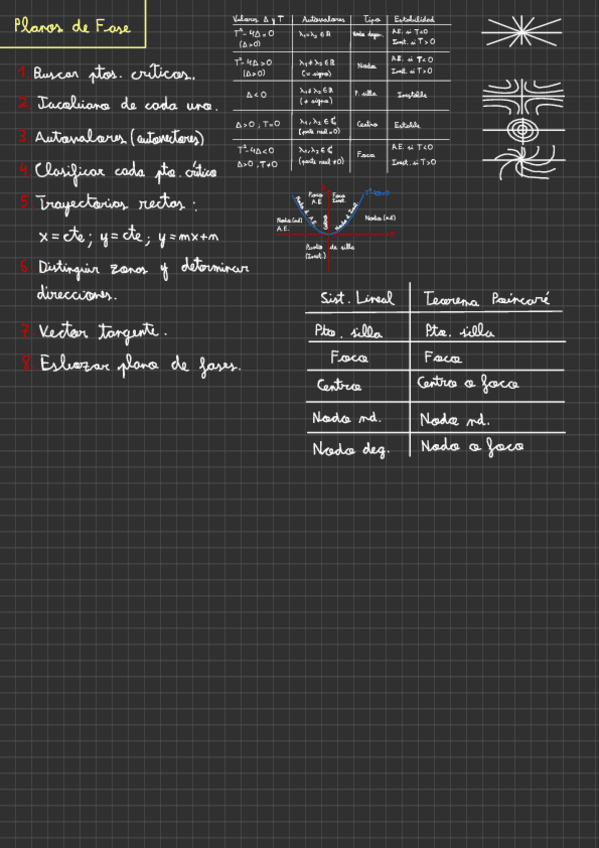 Planos de Fase
1. Buscar ptos. críticos.
2. Jacobiano de cada uno.
3. Autovalores (autovectores)
4. Clasificar cada pto. crítico
5. Trayectorias rectas:
x = cte; y = cte; y = mx+n
6. Distinguir zonas y determinar
direcciones.
7. Vector tangente.
8. Esbozar plano de fases.
Valores Δ y T Autovalores Tipo Estabilidad
T²-4Δ = 0 λ₁ = λ₂ ∈ ℝ Nodo degen. A.E. si T<0
(Δ>0) Inest. si T>0
T²-4Δ > 0 λ₁ ≠ λ₂ ∈ ℝ Nodo A.E. si T<0
(Δ>0) (= signo) Inest. si T>0
Δ < 0 λ₁ ≠ λ₂ ∈ ℝ P. silla Inestable
(≠ signo)
Δ>0; T=0 λ₁, λ₂ ∈ ℂ Centro Estable
(parte real = 0)
T²-4Δ<0 λ₁, λ₂ ∈ ℂ Foco A.E. si T<0
Δ>0, T≠0 (parte real ≠0) Inest. si T>0
Foco A.E. Foco Inest.
Nodo (nd) A.E. Nodo (nd)
Punto de silla
(Inest.)
Sist. Lineal Teorema Poincaré
Pto. silla Pto. silla
Foco Foco
Centro Centro o foco
Nodo nd. Nodo nd.
Nodo deg. Nodo o foco